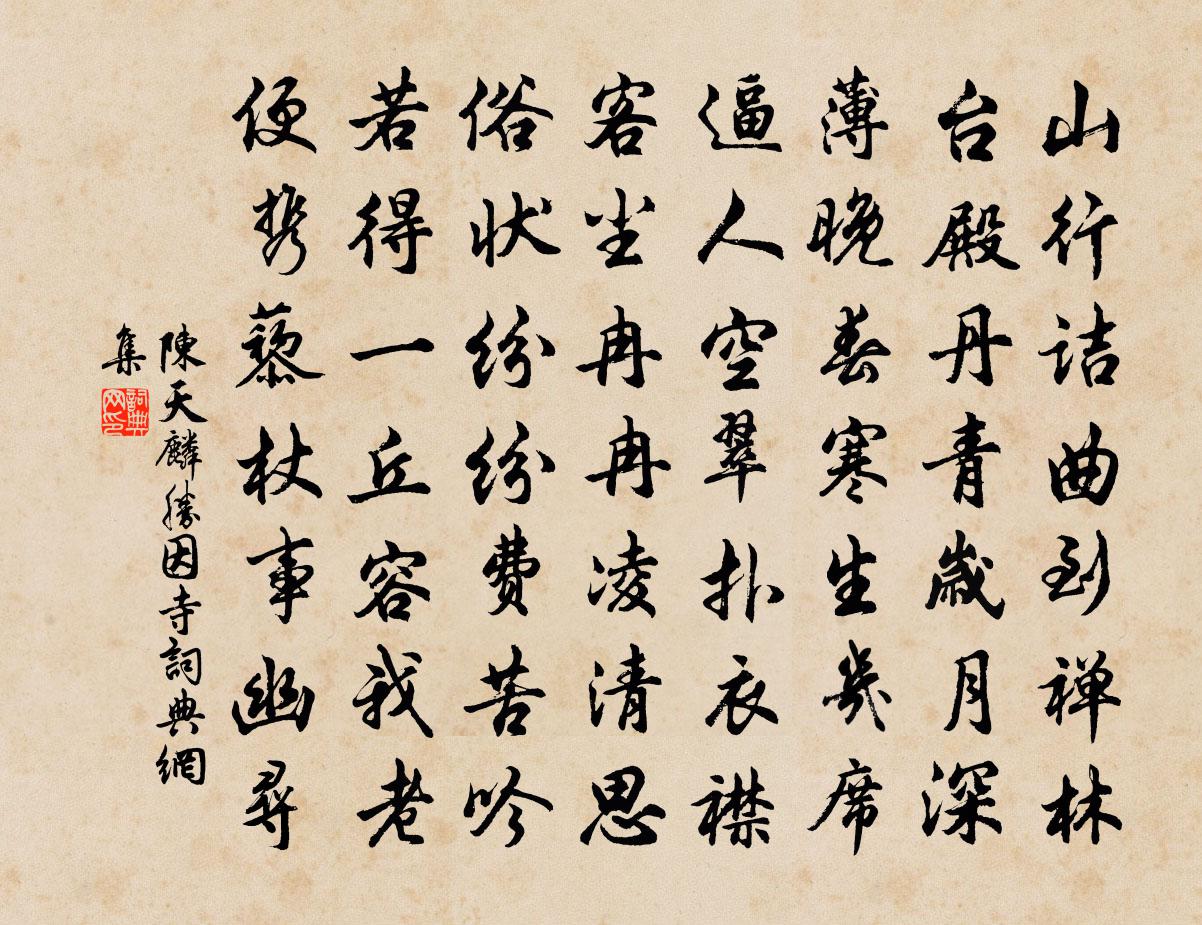 山行诘曲到禅林
台殿丹青歲月深
薄晚春寒生几席
逼人空翠扑衣襟
客尘冉冉凌清思
俗状纷纷费苦吟
若得一丘容我老
便携藜杖事幽尋
陳天麟勝因寺詞典網
集
詞典
网印